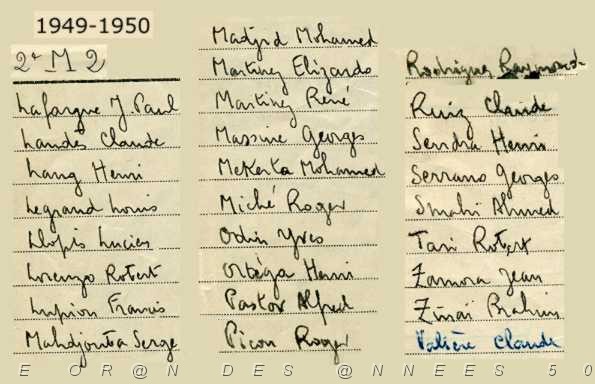 1949-1950
2e M 2
Lafargue J Paul
Landes Claude
Lang Henri
Legrand Louis
Llopis Lucien
Lorenzo Robert
Lupion Francis
Mahdjouba Serge
Madjid Mohamed
Martinez Elizardo
Martinez René
Massine Georges
McKerta Mohamed
Miché Roger
Odin Yves
Ortéga Henri
Pastor Alfred
Picon Roger
Rodrigues Raymond
Ruiz Claude
Sendra Henri
Serrano Georges
Smahi Ahmed
Tari Robert
Zamora Jean
Zinaï Brahim
Valière Claude
E OR@N DES @NNEES 50